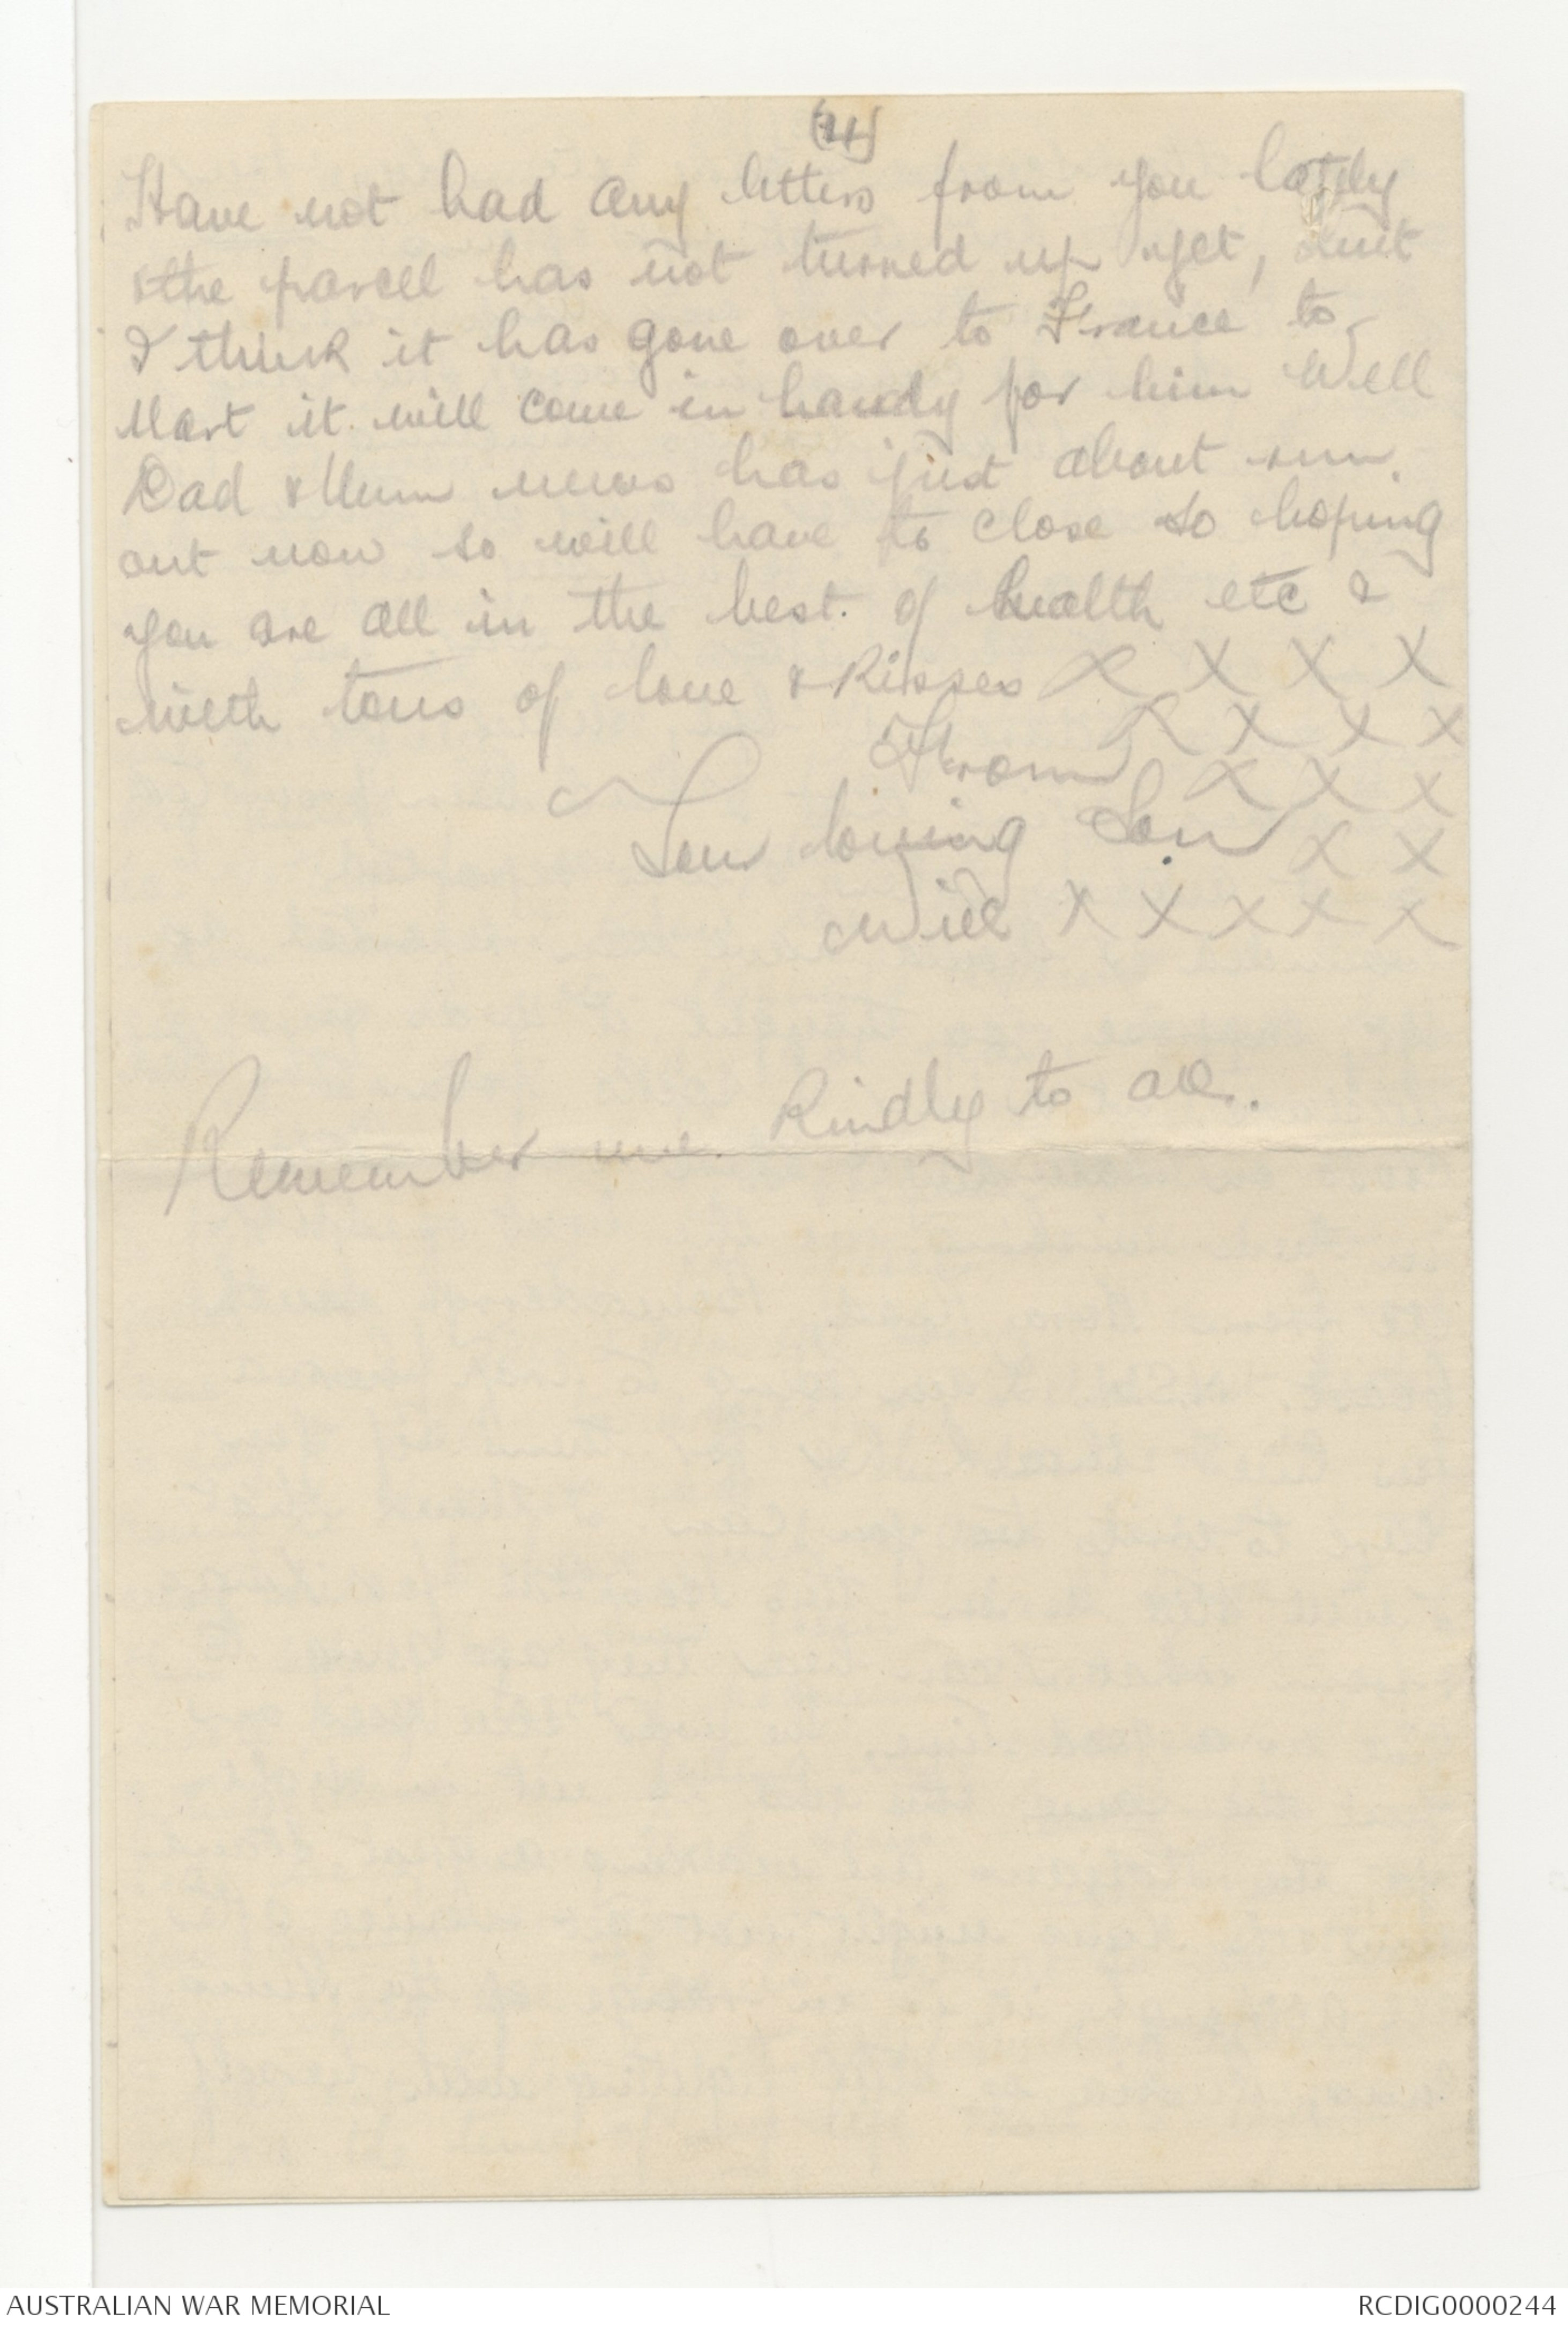 (4)
Have not had any letters from you lately
& the parcel has not turned up yet, but
I think it has gone over to France to
Mart it will come in handy for him Well
Dad & Mum news has just about run
out now so will have to close so hoping
you are all in the best. of health etc &
with tons of love & Kisses X X X X
From X X X X
X X X
Your loving Son X X
Will X X X X X
Remember me. Kindly to all.
AUSTRALIAN WAR MEMORIAL
RCDIG0000244